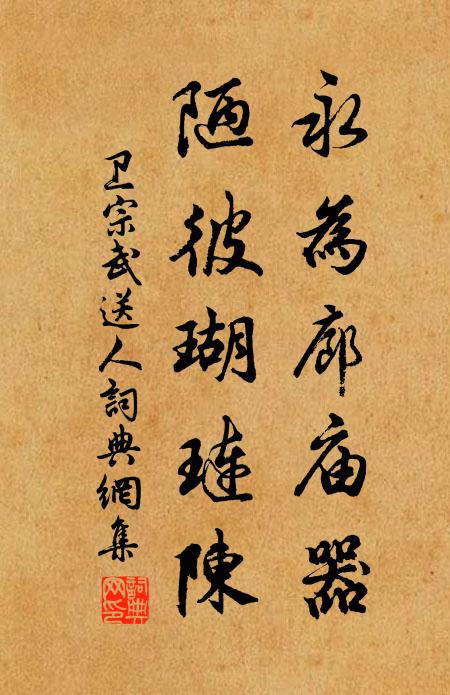 永為廊庙器
陋彼瑚璉陳
卫宗武送人詞典網集
詞典网印